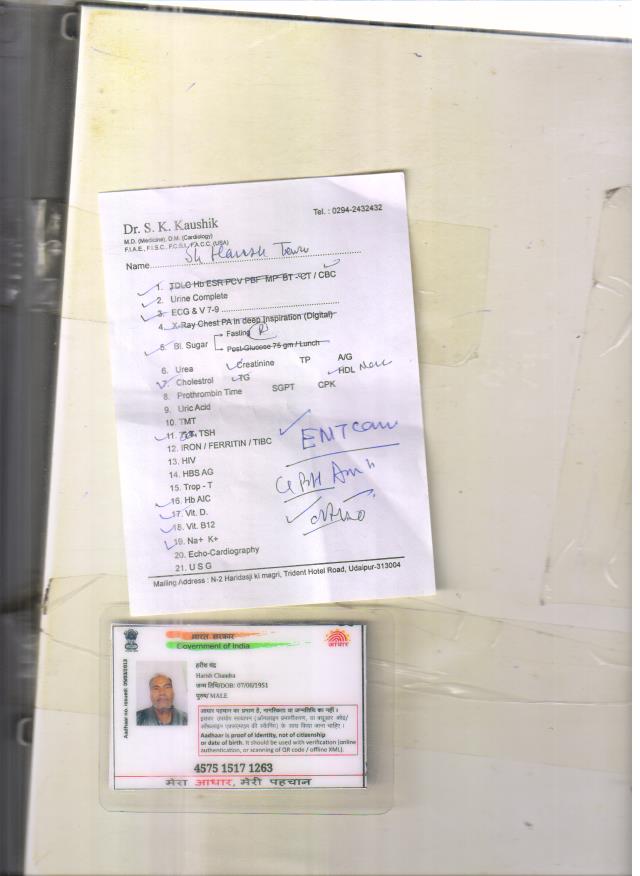 Dr. S. K. Kaushik
Tel. : 0294-2432432
M.D. (Medicine), D.M. (Cardiology)
F.I.A.E., F.I.S.C., F.C.S.I., F.A.C.C. (USA)
Name
1. TDLC Hb ESR PCV PBF MP BT - CT / CBC
2. Urine Complete
3. ECG & V 7-9
4. X-Ray Chest PA in deep Inspiration (Digital)
5. Bl. Sugar Fasting R
Post-Glucose 75 gm / Lunch
6. Urea Creatinine TP A/G
7. Cholestrol TG HDL
8. Prothrombin Time SGPT CPK
9. Uric Acid
10. TMT
11. TSH
12. IRON / FERRITIN / TIBC
13. HIV
14. HBS AG
15. Trop - T
16. Hb AIC
17. Vit. D.
18. Vit. B12
19. Na+ K+
20. Echo-Cardiography
21. U S G
ENT
Mailing Address : N-2 Haridasji ki magri, Trident Hotel Road, Udaipur-313004
भारत सरकार
Government of India
आधार
हरीश चंद्र
Harish Chandra
जन्म तिथि/DOB: 07/06/1951
पुरुष/ MALE
आधार पहचान का प्रमाण है, नागरिकता या जन्मतिथि का नहीं ।
इसका उपयोग सत्यापन (ऑनलाइन प्रमाणीकरण, या क्यूआर कोड/
ऑफलाइन एक्सएमएल की स्कैनिंग) के साथ किया जाना चाहिए ।
Aadhaar is proof of identity, not of citizenship
or date of birth. It should be used with verification (online
authentication, or scanning of QR code / offline XML).
4575 1517 1263
मेरा आधार, मेरी पहचान